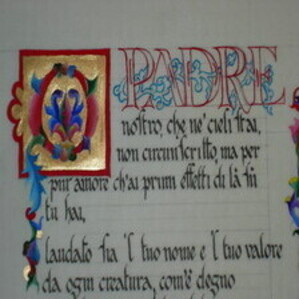 O PADRE
nostro, che ne' cieli stai,
non circunscritto, ma per
piu' amore ch'ai primi effetti di là sù
tu hai,
laudato sia 'l tuo nome e 'l tuo valore
da ogni creatura, com'è degno